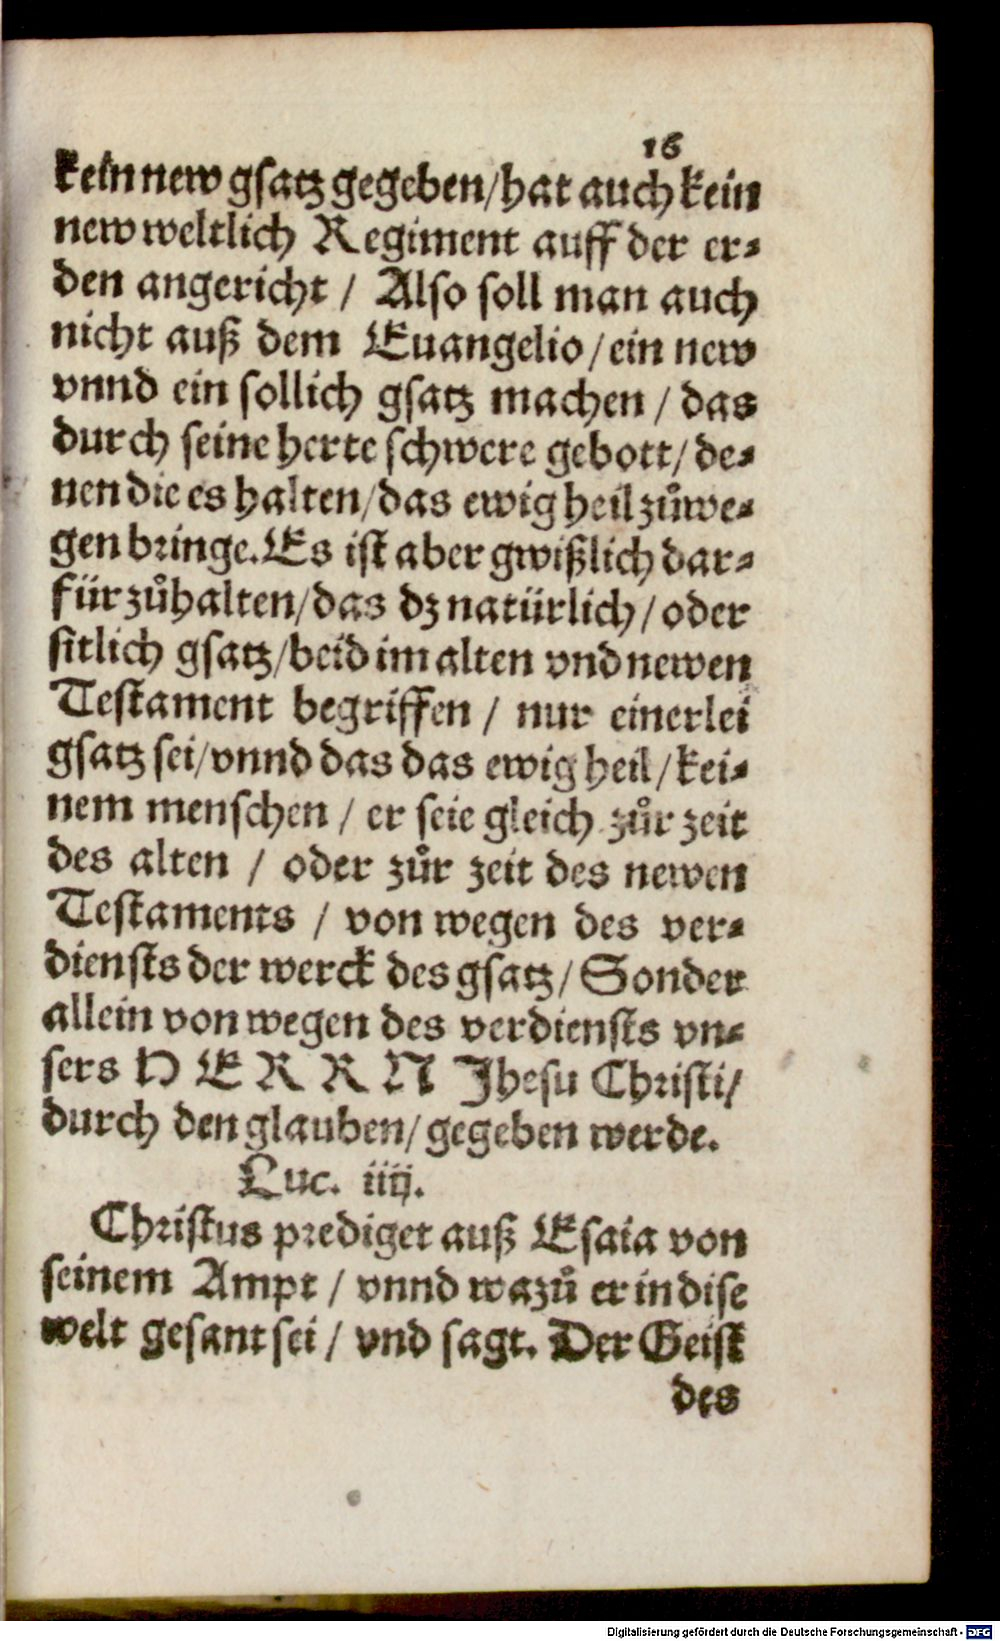 16
kein new gsatz gegeben/hat auch kein
new weltlich Regiment auff der er⸗
den angericht / Also soll man auch
nicht auß dem Euangelio / ein new
vnnd ein sollich gsatz machen / das
durch seine herte schwere gebott/ de⸗
nen die es halten/das ewig heil zůwe⸗
gen bringe. Es ist aber gwißlich dar⸗
für zůhalten/das dz natürlich/ oder
sitlich gsatz/beid im alten vnd newen
Testament begriffen / nur einerlei
gsatz sei/vnnd das das ewig heil/kei⸗
nem menschen / er seie gleich zůr zeit
des alten / oder zůr zeit des newen
Testaments / von wegen des ver⸗
diensts der werck des gsatz/ Sonder
allein von wegen des verdiensts vn⸗
sers HERRN Jhesu Christi/
durch den glauben/ gegeben werde.
Luc. iiij.
Christus prediget auß Esaia von
seinem Ampt / vnnd wazů er in dise
welt gesant sei / vnd sagt. Der Geist
des
Digitalisierung gefördert durch die Deutsche Forschungsgemeinschaft - DFG